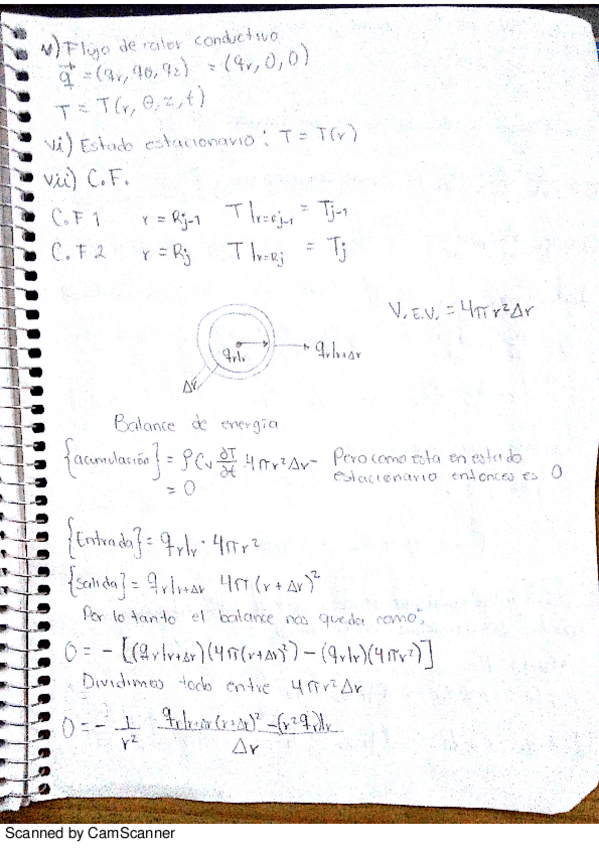 v) Flujo de calor conductivo
q⃗ = (qr, qθ, qz) = (qr, 0, 0)
T = T(r, θ, z, t)
vi) Estado estacionario: T = T(r)
vii) C.F.
C.F 1 r = Rj-1 T|r=Rj-1 = Tj-1
C.F 2 r = Rj T|r=Rj = Tj
V.E.V. = 4πr²Δr
qr|r
qr|r+Δr
Δr
Balance de energía
{acumulación} = ρCv ∂T/∂t 4πr²Δr Pero como esta en estado
= 0 estacionario entonces es 0
{Entrada} = qr|r · 4πr²
{salida} = qr|r+Δr 4π(r+Δr)²
Por lo tanto el balance nos queda como:
0 = -[(qr|r+Δr)(4π(r+Δr)²) - (qr|r)(4πr²)]
Dividimos todo entre 4πr²Δr
0 = - 1/r² qr|r+Δr(r+Δr)² - (r²qr)|r / Δr
Scanned by CamScanner